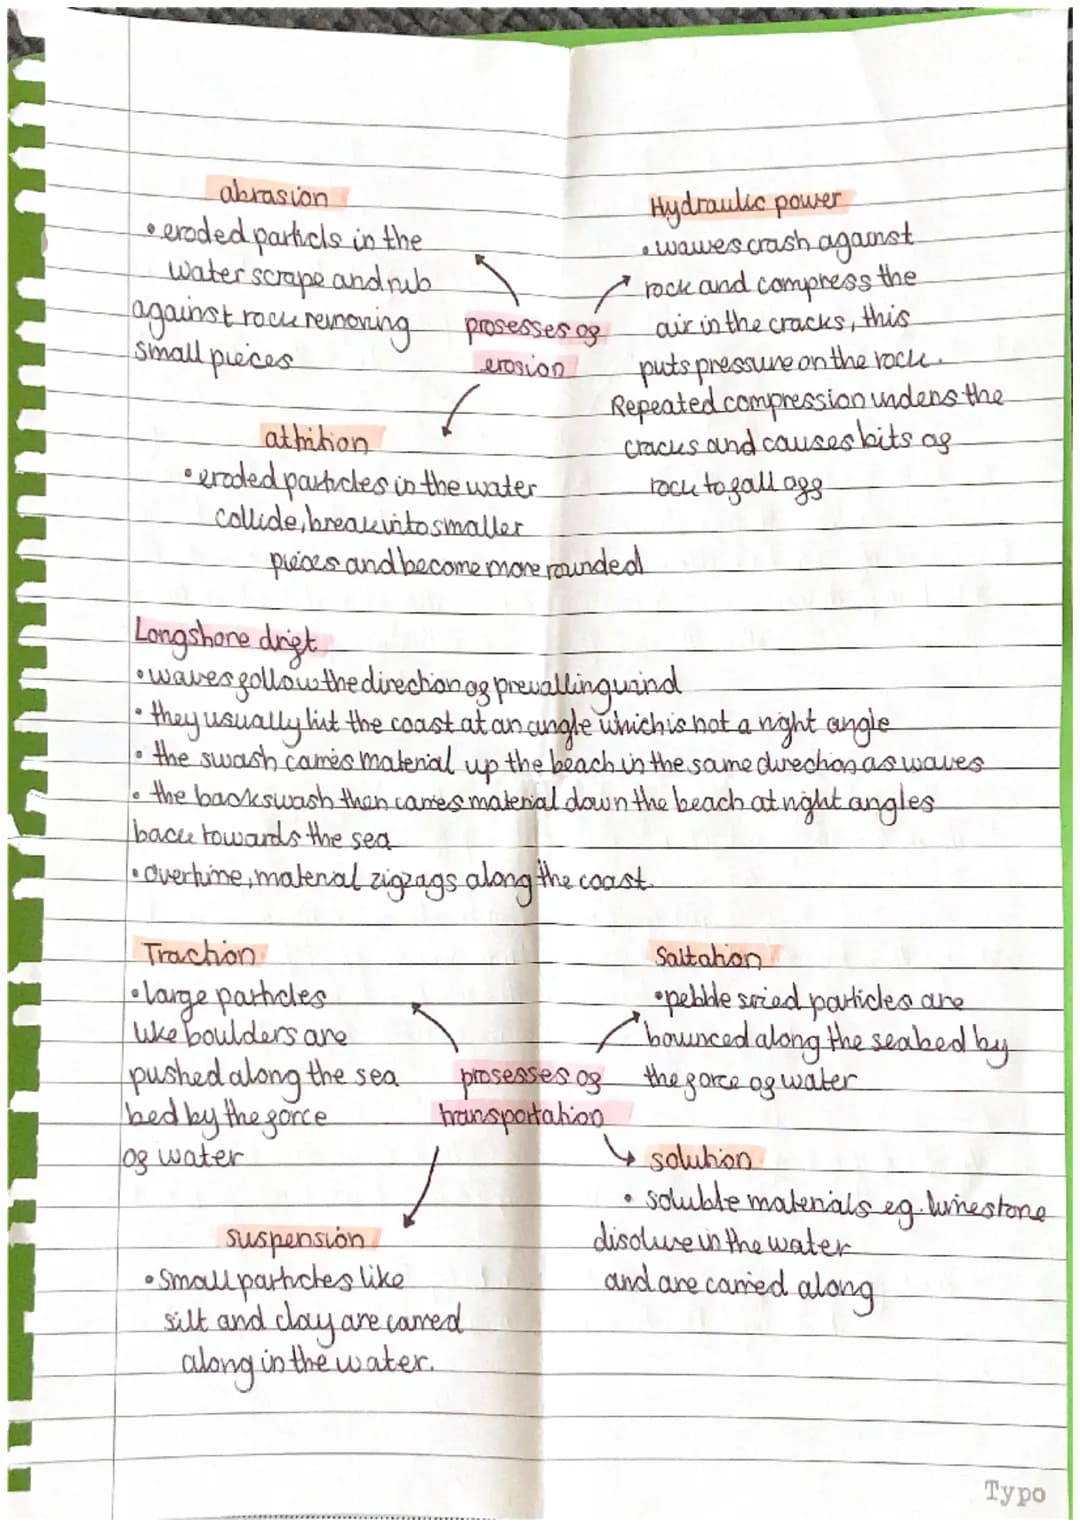 abrasion
• eroded particls in the
water scrape and rub
against rock removing
small pieces
Hydraulic power
• wawes crash against
rock and compress the
air in the cracks, this
puts pressure on the rock.
Repeated compression widens the
cracks and causes bits of
rock to fall off
prosesses of
erosion
attrition
• eroded particles in the water
collide, break into smaller
pieces and become more rounded
Longshore drift
• waves follow the direction of prevailing wind
• they usually hit the coast at an angle which is not a right angle
• the swash carries material up the beach in the same direction as waves
• the backswash then carries material down the beach at right angles
back towards the sea
• overtime, material zigzags along the coast.
Traction
• large particles
like boulders are
pushed along the sea
bed by the force
of water
Saltation
• pebble sized particles are
bounced along the seabed by
the force of water
prosesses of
transportation
solution
• soluble materials eg. limestone
disolve in the water
and are carried along
suspension
• Small particles like
silt and clay are carried
along in the water.
Typo